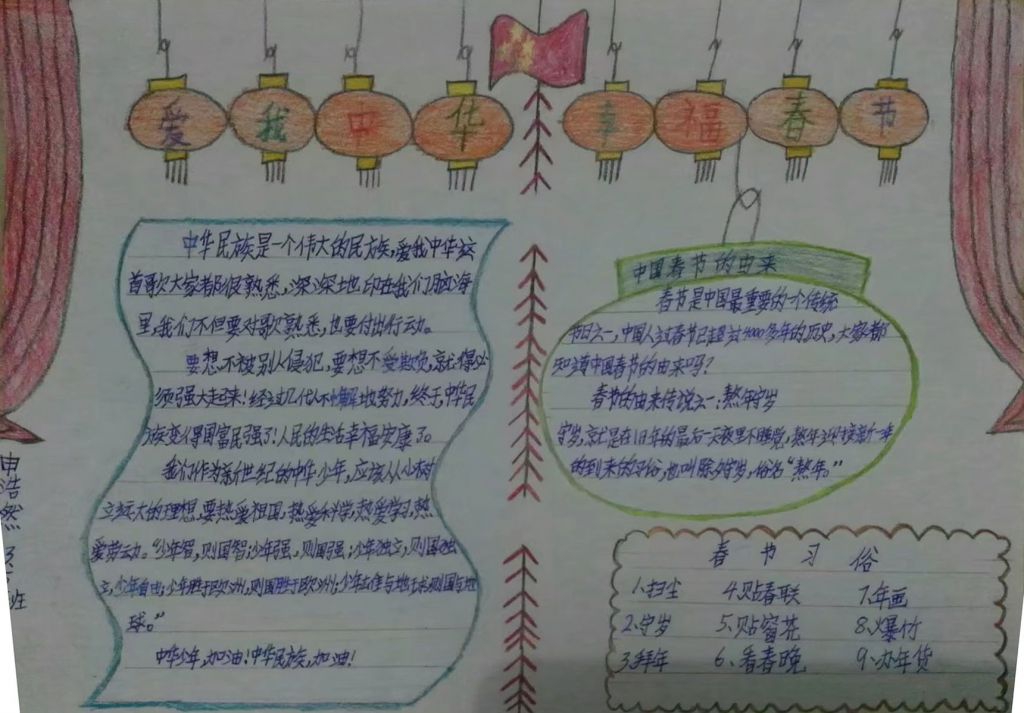 爱我中华 幸福春节
中华民族是一个伟大的民族,爱我中华这
首歌大家都很熟悉,深深地印在我们脑海
里,我们不但要对歌熟悉,也要付出行动。
要想不被别人侵犯,要想不受欺负,就得必
须强大起来!经过几代人不懈地努力,终于,中华民
族变得国富民强了!人民的生活幸福安康了。
我们作为新世纪的中华少年,应该从小树
立远大的理想,要热爱祖国,热爱科学,热爱学习,热
爱劳动。“少年智,则国智;少年强,则国强;少年独立,则国独
立;少年自由;少年胜于欧洲,则国胜于欧洲;少年雄与地球则国与地
球。”
中华少年,加油!中华民族,加油!
中国春节的由来
春节是中国最重要的一个传统
节日之一,中国人过春节已超过4000多年的历史,大家都
知道中国春节的由来吗?
春节的由来传说之一:熬年守岁
守岁,就是在旧年的最后一天夜里不睡觉,熬年迎接新一年
的到来的习俗,也叫除夕守岁,俗名“熬年。”
春节习俗
1、扫尘 4、贴春联 7、年画
2、守岁 5、贴窗花 8、爆竹
3、拜年 6、看春晚 9、办年货
申浩然
班